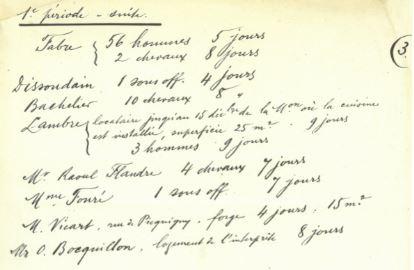 1e période - suite.
3
Fabre { 56 hommes 5 jours
2 chevaux 8 jours
Dissoudain 1 sous off. 4 jours
Bachelier 10 chevaux 8 "
Lambre { locataire jusqu'au 15 déc bre de la Mon où la cuisine
est installée, superficie 25 m² 9 jours
3 hommes 9 jours
Mr Raoul Flandre 4 chevaux 7 jours
Mme Fouré 1 sous off. 7 jours
M. Vicart, rue de Picquigny, forge 4 jours, 15 m²
Mr O. Bocquillon, logement de l'interprète 8 jours